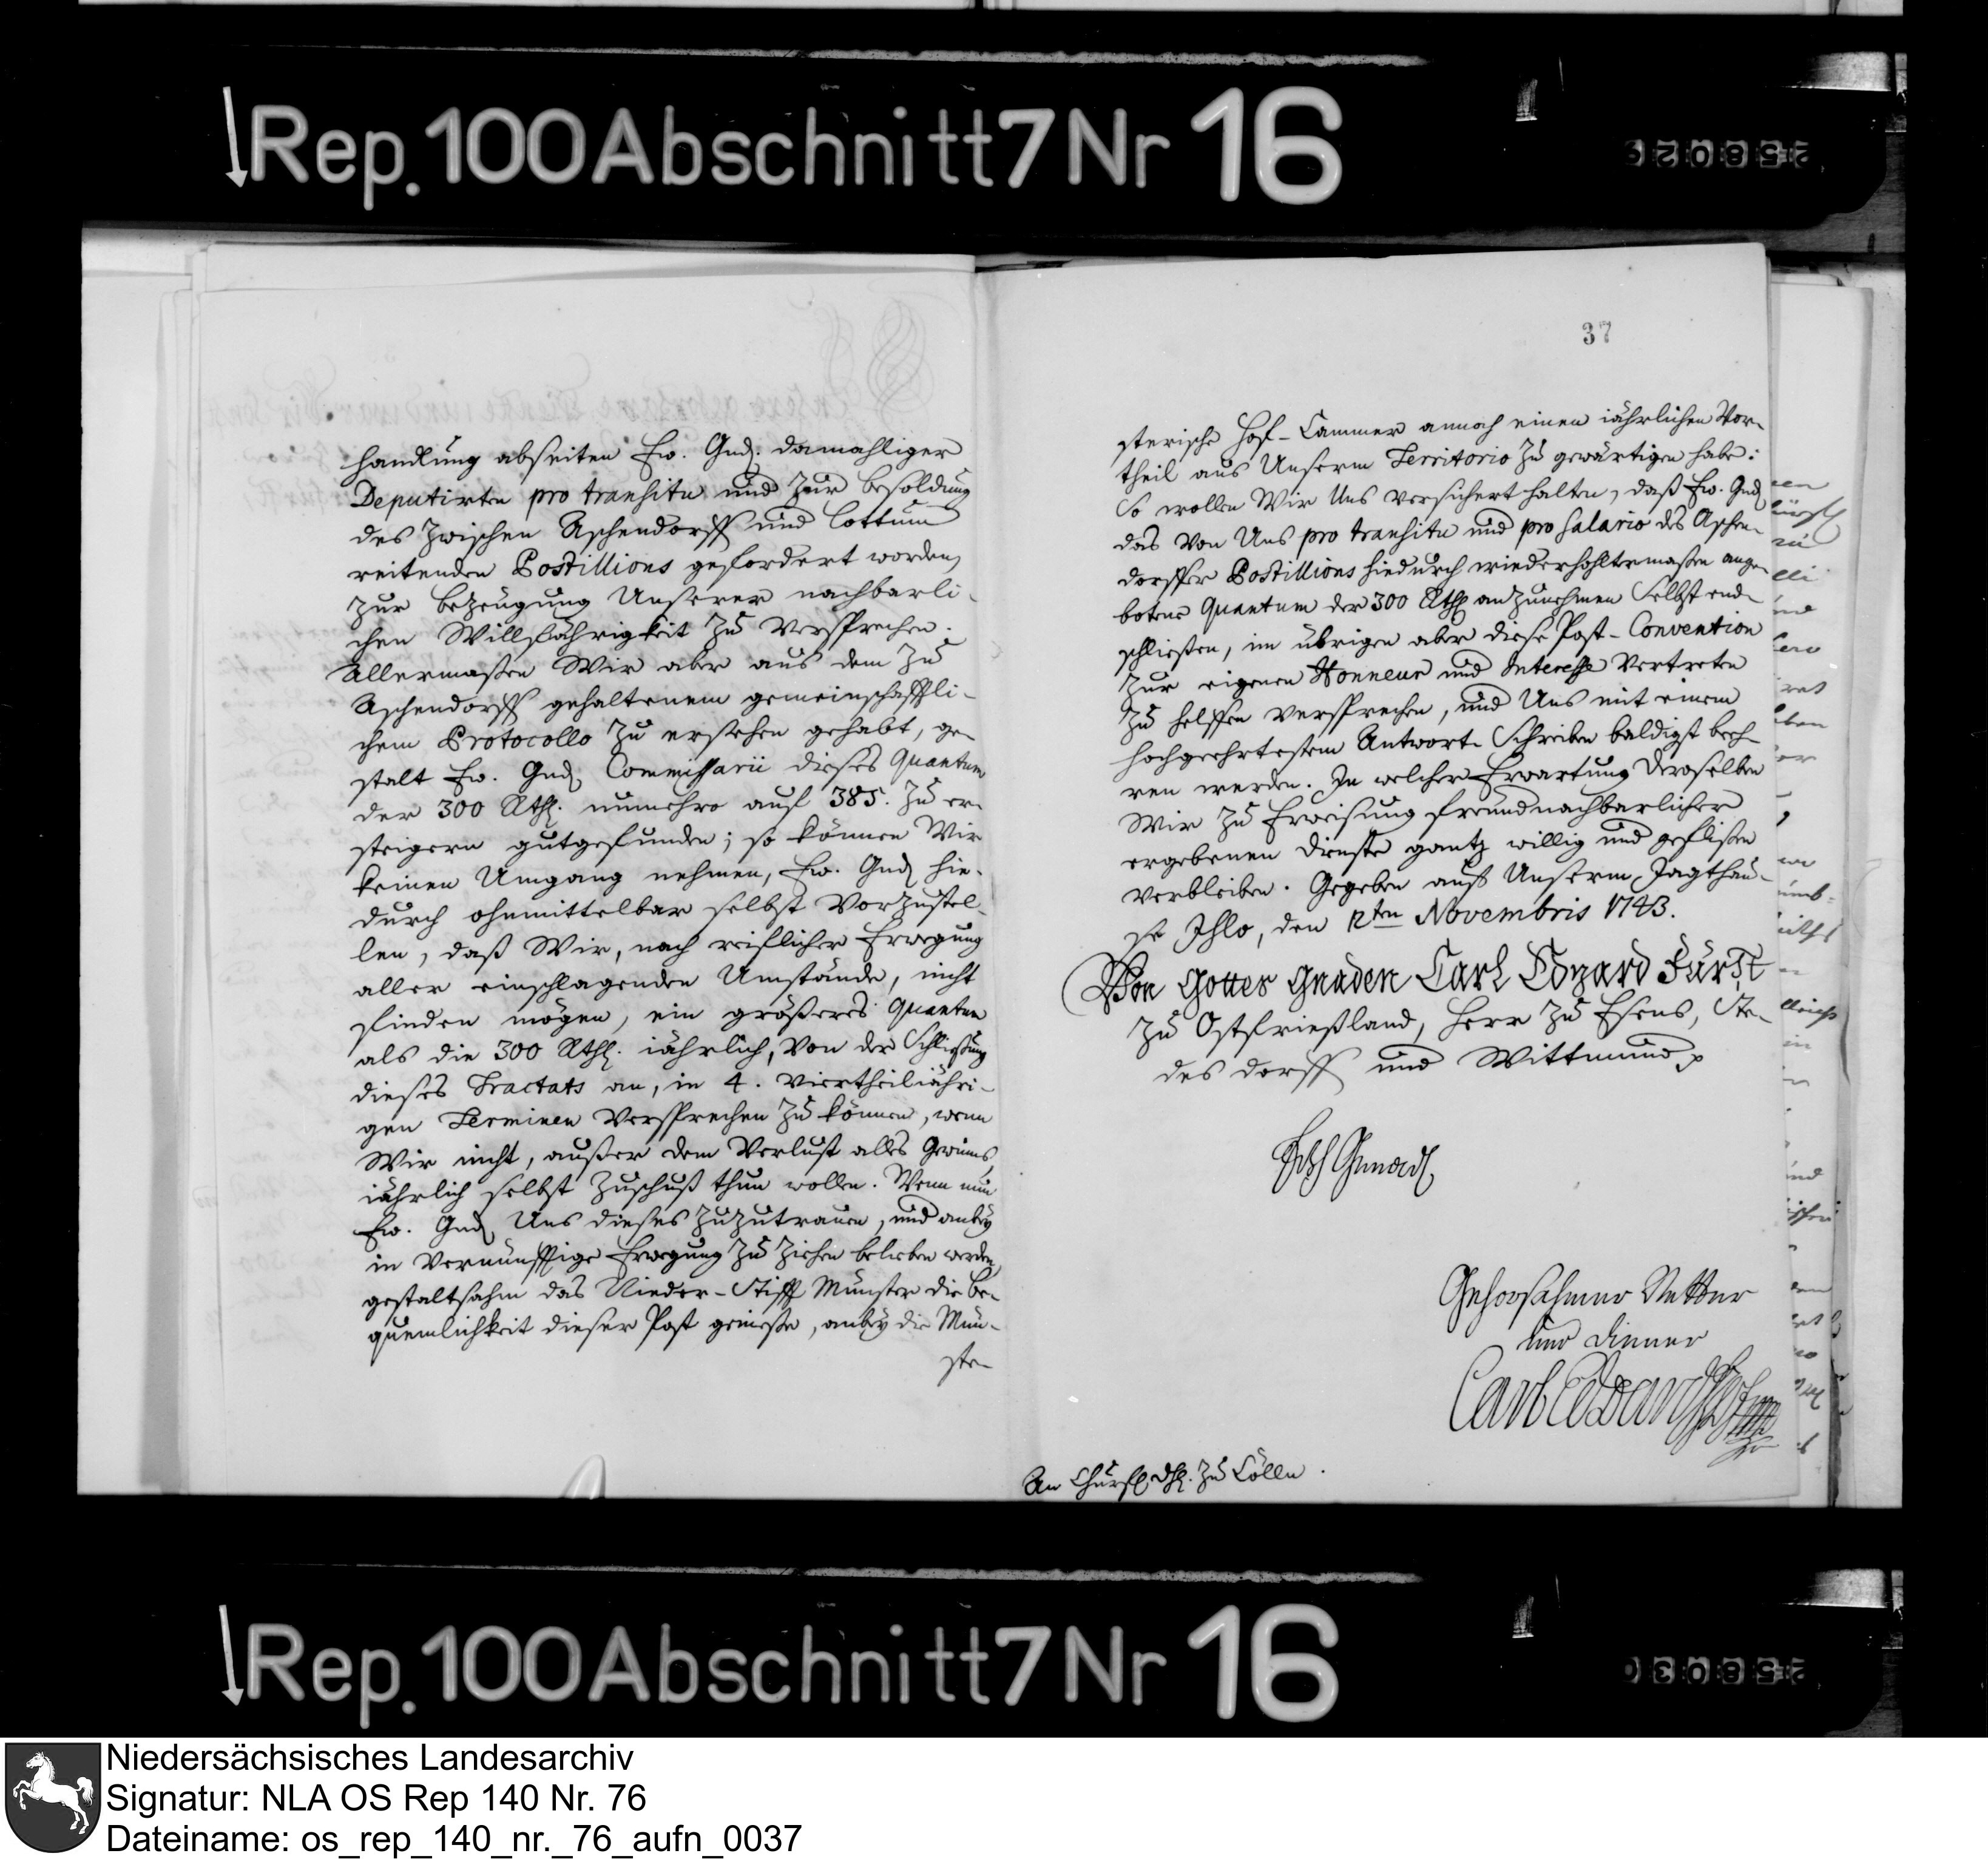 Rep. 100 Abschnitt 7 Nr 16
258029
handlung abseiten Ew. Gnd. damahliger
Deputirten pro transitu und zur Besoldung
des zwischen Aschendorff und Lottum
reitenden Postillions gefordert worden,
zur Bezeugung Unserer nachbarli-
chen Willfährigkeit zu versprechen.
Allermaßen Wir aber aus dem zu
Aschendorff gehaltenem gemeinschafftli-
chem Protocollo zu ersehen gehabt, ge-
stalt Ew. Gnd. Commissarii dieses Quantum
der 300 Rthl. nunmehro auf 385. zu er-
steigern gutgefunden; so können Wir
keinen Umgang nehmen, Ew. Gnd. hie-
durch ohnmittelbar selbst vorzustel-
len, daß Wir, nach reiflicher Erwegung
aller einschlagenden Umstände, nicht
finden mögen, ein größeres Quantum
als die 300 Rthl. iährlich, von der Schließung
dieses Tractats an, in 4. viertheiliähri-
gen Terminen versprechen zu können, wenn
Wir nicht, außer dem Verlust alles Gewinns,
iährlich selbst Zuschuß thun wollen. Wenn nun
Ew. Gnd. Uns dieses zuzutrauen, und anbey
in vernünfftige Erwegung zu ziehen belieben werden,
gestaltsahm das Nieder-Stifft Münster die Be-
quemlichkeit dieser Post genieße, anbey die Mün-
ste-
37
sterische Hof-Cammer annoch einen iährlichen Vor-
theil aus Unserm Territorio zu gewärtigen habe:
So wollen Wir Uns versichert halten, daß Ew. Gnd.
das von Uns pro transitu und pro Salario des Aschen-
dorffer Postillions hiedurch wiederhohltermaßen ange-
botene Quantum der 300 Rthl. anzunehmen Selbst end-
schließen, im übrigen aber diese Post-Convention
zur eigenen Honneur und Interesse vertreten
zu helffen versprechen, und Uns mit einem
hochgeehrtestem Antwort-Schreiben baldigst beeh-
ren werden. In welcher Erwartung Deroselben
Wir zu Erweisung freundnachbarlicher
ergebenen Dienste gantz willig und geflißen
verbleiben. Gegeben auf Unserm Jagthau-
se Ihlo, den 12ten Novembris 1743.
Von Gottes Gnaden Carl Edzard Fürst
zu Ostfrießland, Herr zu Esens, Ste-
des dorff und Wittmund
Gehorsahmer Vetter
und Diener
Carl Edzard
An Churfl. Dhl. zu Cölln.
Rep. 100 Abschnitt 7 Nr 16
258030
Niedersächsisches Landesarchiv
Signatur: NLA OS Rep 140 Nr. 76
Dateiname: os_rep_140_nr._76_aufn_0037